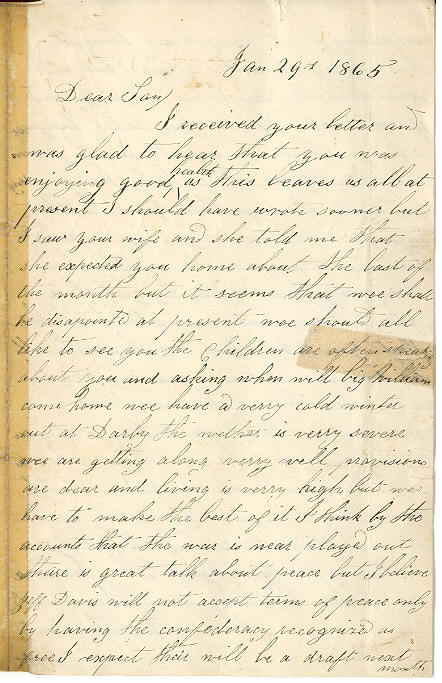 Jan 29th 1865
Dear Son
I received your letter and
was glad to hear that you was
enjoying good health as this leaves us all at
present I should have wrote sooner but
I saw your wife and she told me that
she expected you home about the last of
the month but it seems that wee shall
be disapointed at present wee should all
like to see you the Children are often
about you and asking when will big William
come home wee have a verry cold winter
out at Darby the wether is verry severe
wee are getting along verry well provisions
are dear and living is verry high but wee
have to make the best of it I think by the
accounts that the war is near played out
their is great talk about peace but I believe
Jeff Davis will not accept terms of peace only
by having the confederacy recognized as
free I expect their will be a draft next
month